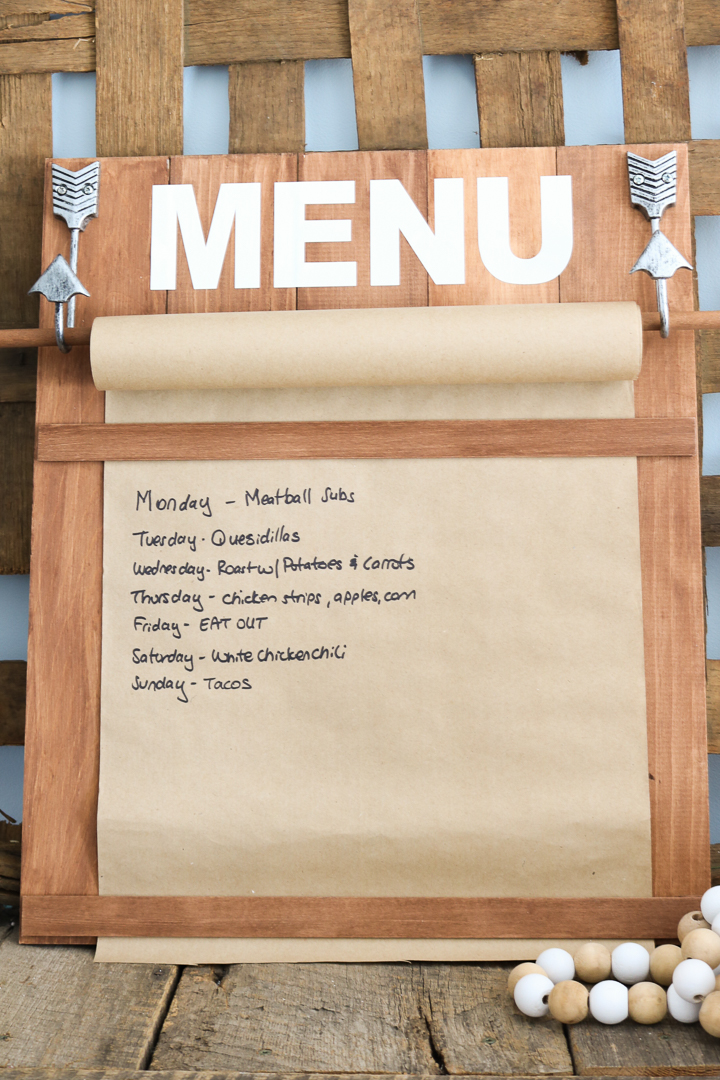 MENU
Monday - Meatball Subs
Tuesday - Quesidillas
Wednesday - Roast w/ Potatoes & Carrots
Thursday - chicken strips, apples, corn
Friday - EAT OUT
Saturday - White chicken chili
Sunday - Tacos